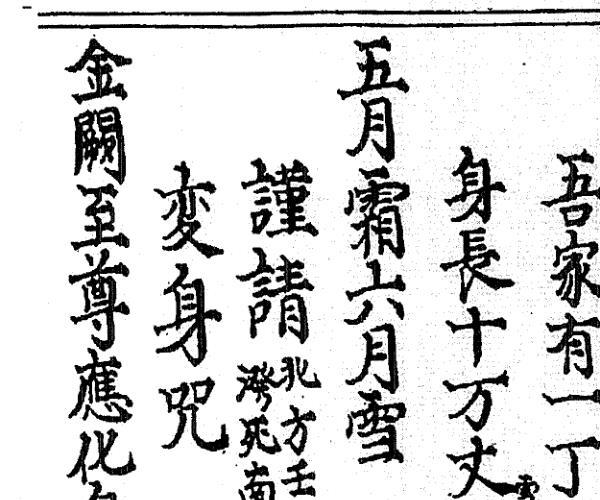 吾家有一丁
身長十万丈
五月霜六月雪
謹請
北方壬
死南
変身咒
金闕至尊應化